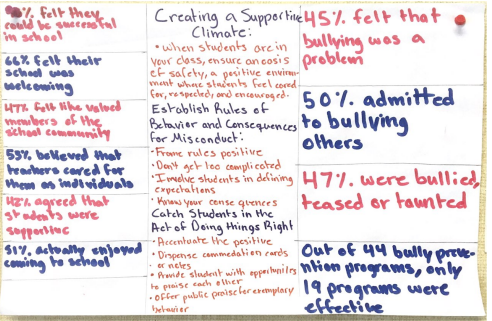 % felt they
could be successful
in school
66% felt their
school was
welcoming
47% felt like valued
members of the
school community
55% believed that
teachers cared for
them as individuals
42% agreed that
students were
supportive
51% actually enjoyed
coming to school
Creating a Supportive
Climate:
• When students are in
your class, ensure an oasis
of safety, a positive environ-
ment where students feel cared
for, respected, and encouraged.
Establish Rules of
Behavior and Consequences
for Misconduct:
• Frame rules positive
• Don't get too complicated
• Involve students in defining
expectations
• Know your consequences
Catch Students in the
Act of Doing Things Right
• Accentuate the positive
• Dispense commendation cards
or notes
• Provide student with opportunities
to praise each other
• Offer public praise for exemplary
behavior
45% felt that
bullying was a
problem
50% admitted
to bullying
others
47% were bullied,
teased or taunted
Out of 44 bully preve-
ntion programs, only
19 programs were
effective